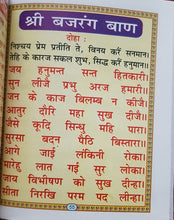 श्री बजरंग बाण
दोहा :
निश्चय प्रेम प्रतीति ते, विनय करैं सनमान।
तेहि के कारज सकल शुभ, सिद्ध करैं हनुमान॥
जय हनुमन्त सन्त हितकारी।
सुन लीजै प्रभु अरज हमारी॥
जन के काज विलम्ब न कीजै।
आतुर दौरि महा सुख दीजै॥
जैसे कूदि सिन्धु महि पारा।
सुरसा बदन पैठि बिस्तारा॥
आगे जाई लंकिनी रोका।
मारेहु लात गई सुर लोका॥
जाय विभीषण को सुख दीन्हा।
सीता निरखि परम पद लीन्हा॥